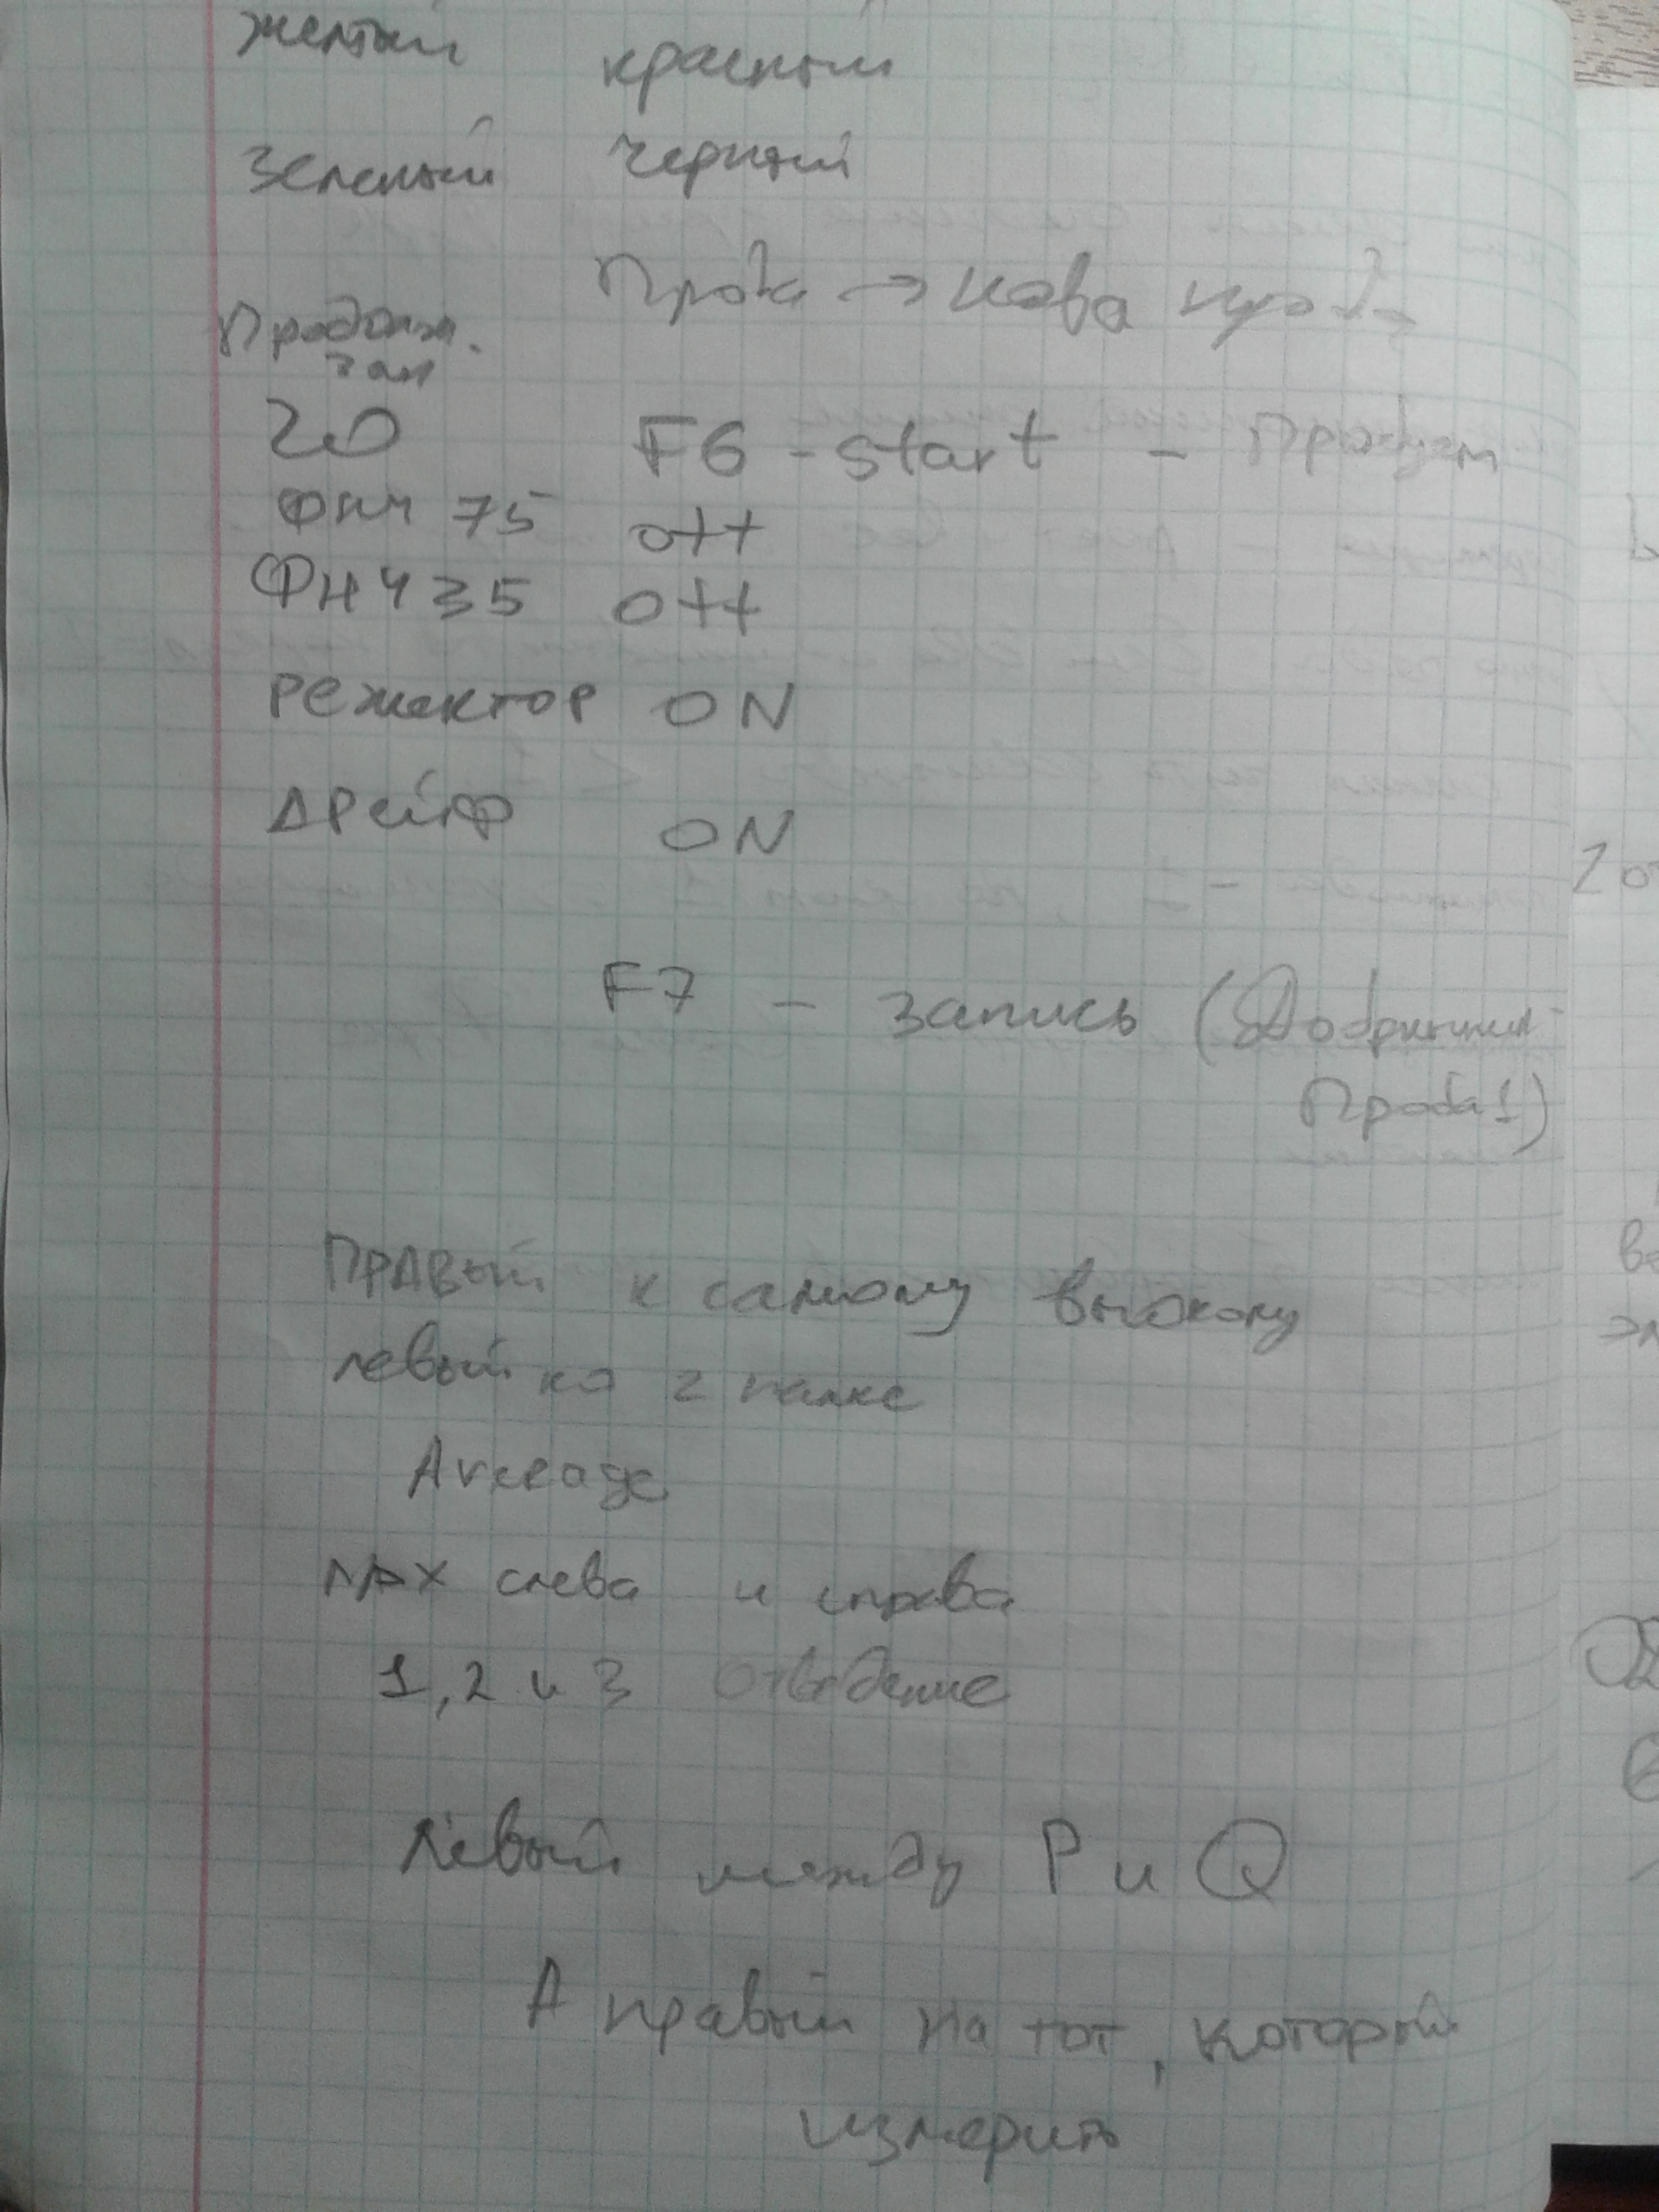 желтый красный
зеленый черный
Проба → нова проба
Продолж.
зап
20 F6 - start -
ФНЧ 75 off
ФНЧ 35 off
режектор ON
Дрейф ON
F7 - запись (Добрынин
Проба 1)
Правый к самому высокому
левый ко 2 палке
Average
MAX слева и справа
1, 2 и 3 отведение
Левый между P и Q
А правый на тот, который
измерить